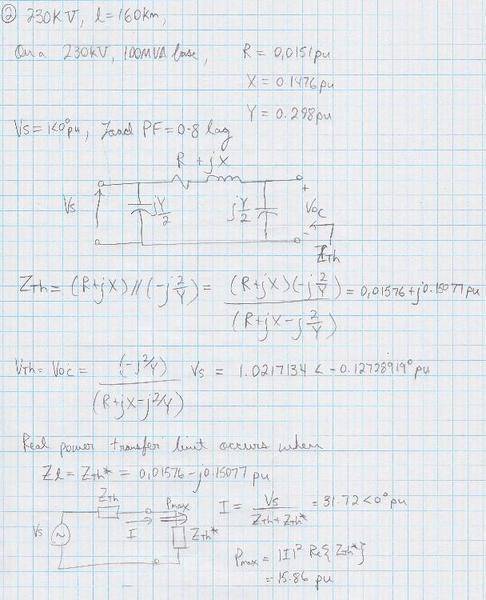 ② 230KV, l=160km,
On a 230KV, 100MVA base, R = 0,0151pu
X = 0.1476pu
Y = 0.298pu
Vs=1<0°pu, Load PF=0.8 lag
R + jX
Vs jY/2 jY/2 + Voc -
Zth
ZTh = (R+jX)//(-j2/Y) = (R+jX)(-j2/Y)/(R+jX-j2/Y) = 0,01576+j0.15077pu
VTh = Voc = (-j2/Y)/(R+jX-j2/Y) Vs = 1.0217134 < -0.12728919° pu
Real power transfer limit occurs when
Zl = ZTh* = 0,01576-j0.15077 pu
ZTh Pmax
Vs ~ I ZTh*
I = Vs/(ZTh+ZTh*) = 31.72<0° pu
Pmax = |I|² Re{ZTh*}
= 15.86 pu